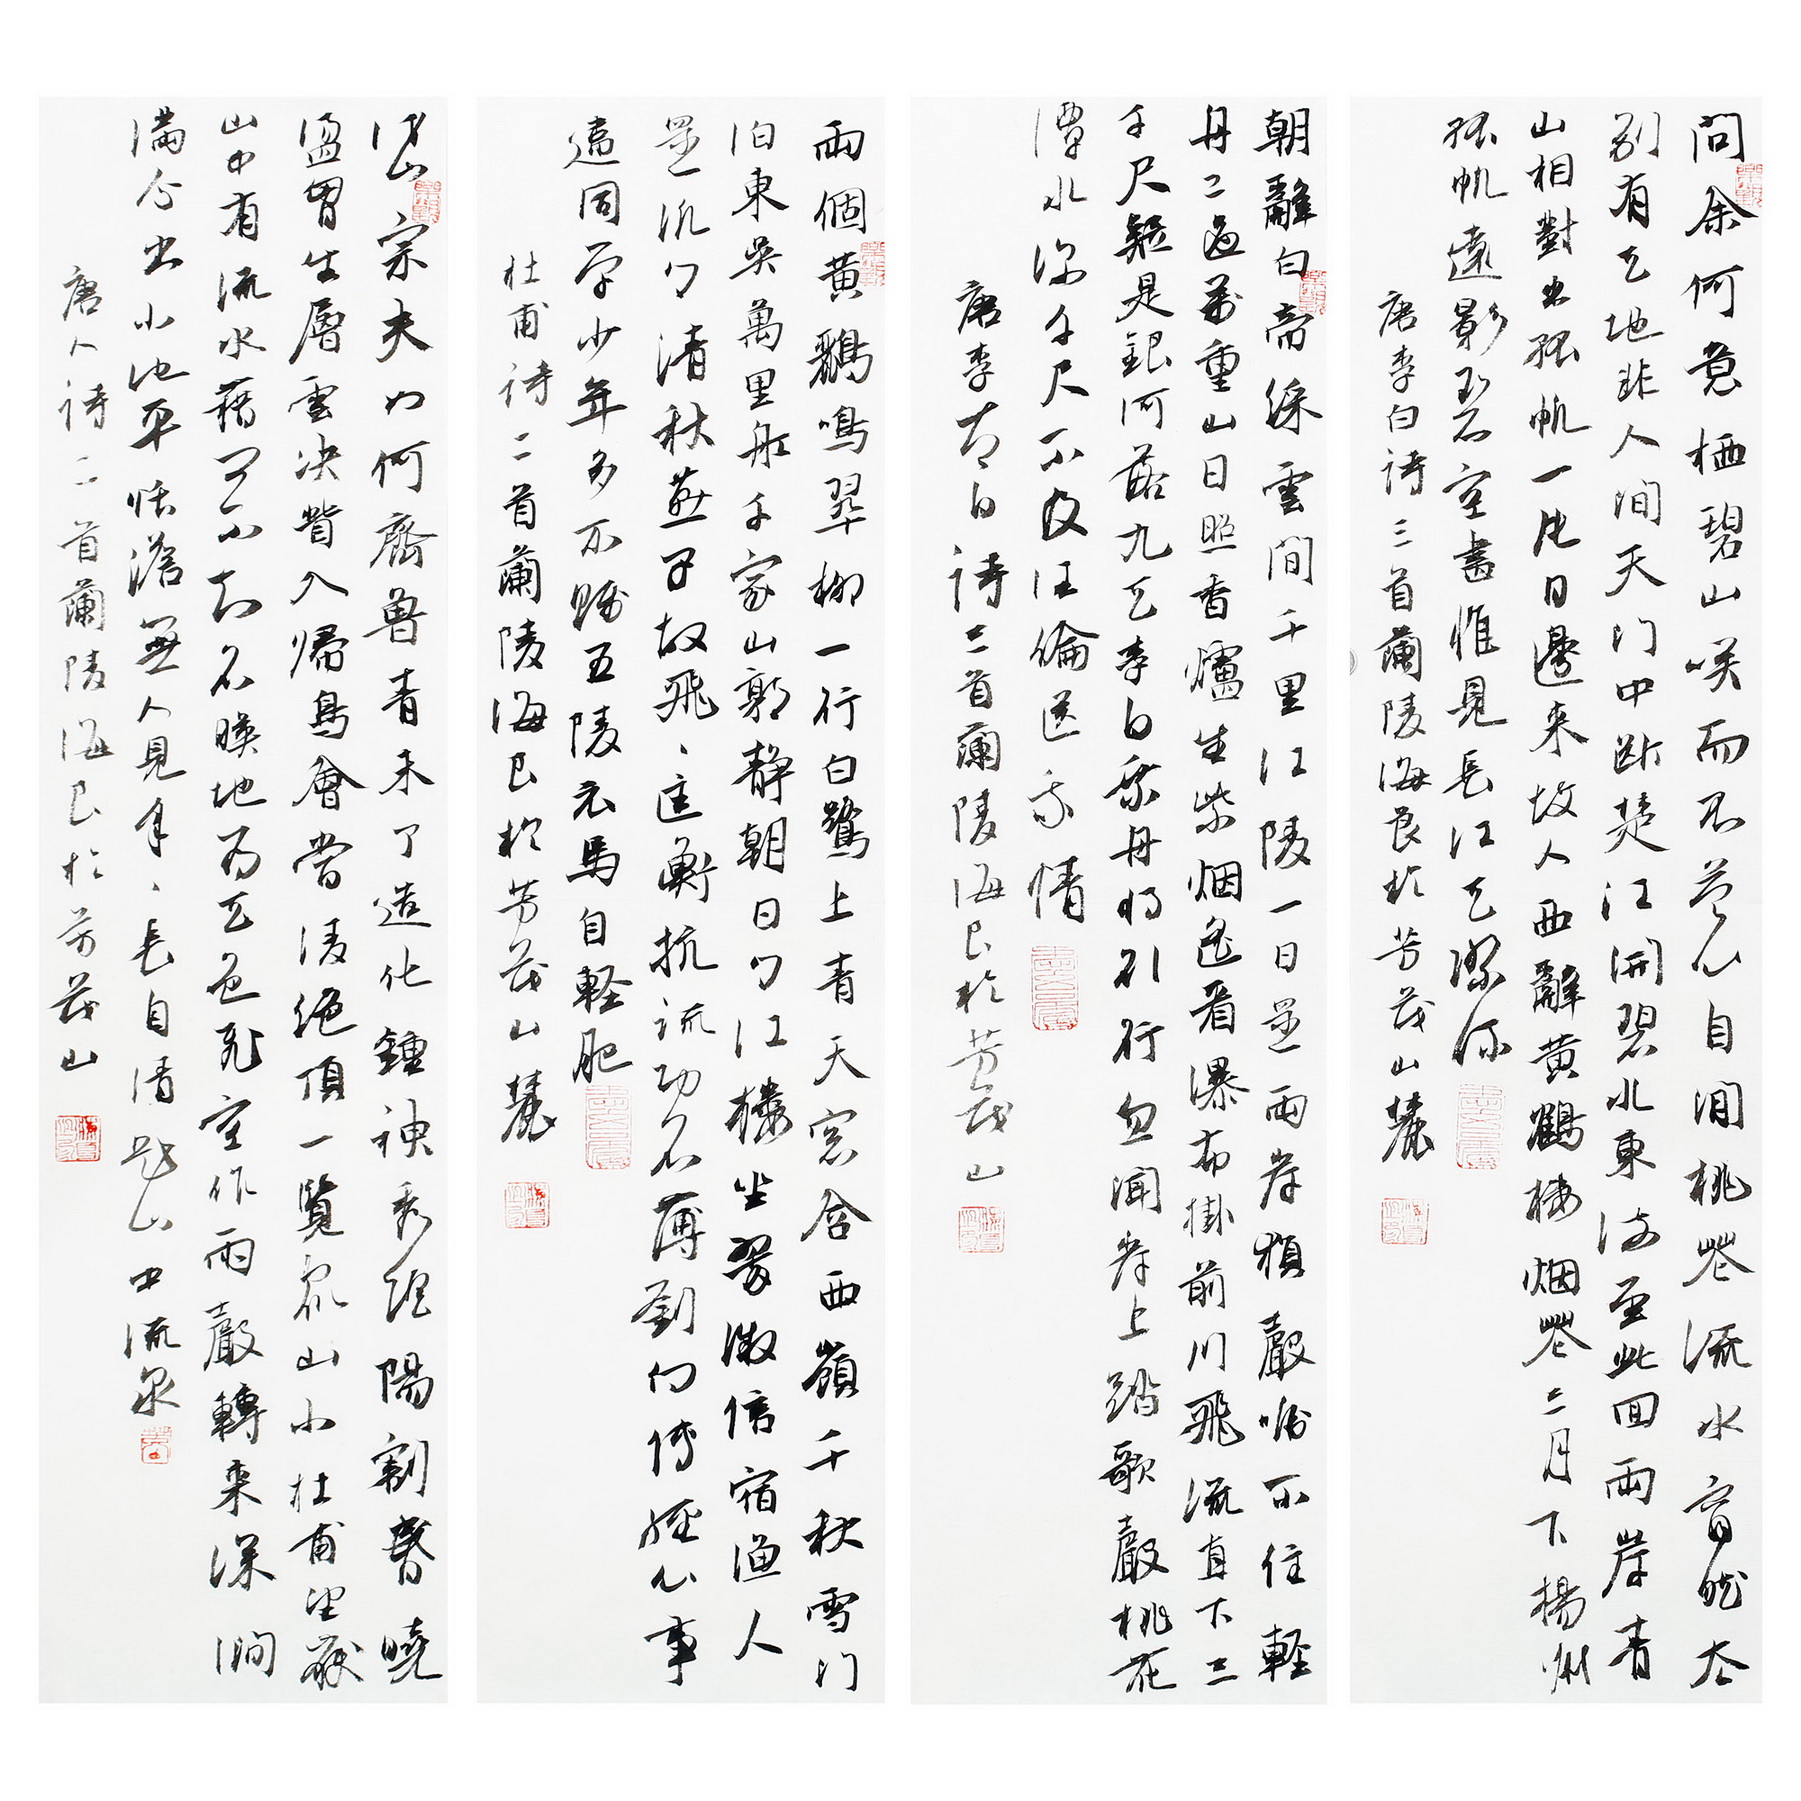 問余何意栖碧山笑而不答心自閒桃花流水窅然去
別有天地非人間天门中断楚江開碧水東流至此回兩岸青
山相對出孤帆一片日邊来故人西辭黄鶴楼烟花三月下揚州
孤帆遠影碧空盡惟見長江天際流
唐李白诗三首蘭陵海良於芳茂山麓
朝辭白帝綵雲間千里江陵一日還兩岸猿聲啼不住輕
舟已過萬重山日照香爐生紫烟遥看瀑布掛前川飛流直下三
千尺疑是銀河落九天李白乘舟将欲行忽聞岸上踏歌聲桃花
潭水深千尺不及汪倫送我情
唐李太白诗三首蘭陵海良於芳茂山
兩個黄鸝鳴翠柳一行白鷺上青天窓含西嶺千秋雪门
泊東吳萬里船千家山郭静朝日日江樓坐翠微信宿漁人
還汎汎清秋燕子故飛飛匡衡抗疏功名薄劉向傳經心事
違同学少年多不賤五陵衣馬自輕肥
杜甫诗二首蘭陵海良於芳茂山麓
岱宗夫如何齊魯青未了造化鍾神秀陰陽割昏曉
盪胷生層雲决眥入歸鳥會當凌絶頂一覽衆山小杜甫望嶽
山中有流水藉問不知名暎地为天色飛空作雨聲轉来深澗
满分出小池平恬澹無人見年、長自清题山中流泉
唐人诗二首蘭陵海良於芳茂山